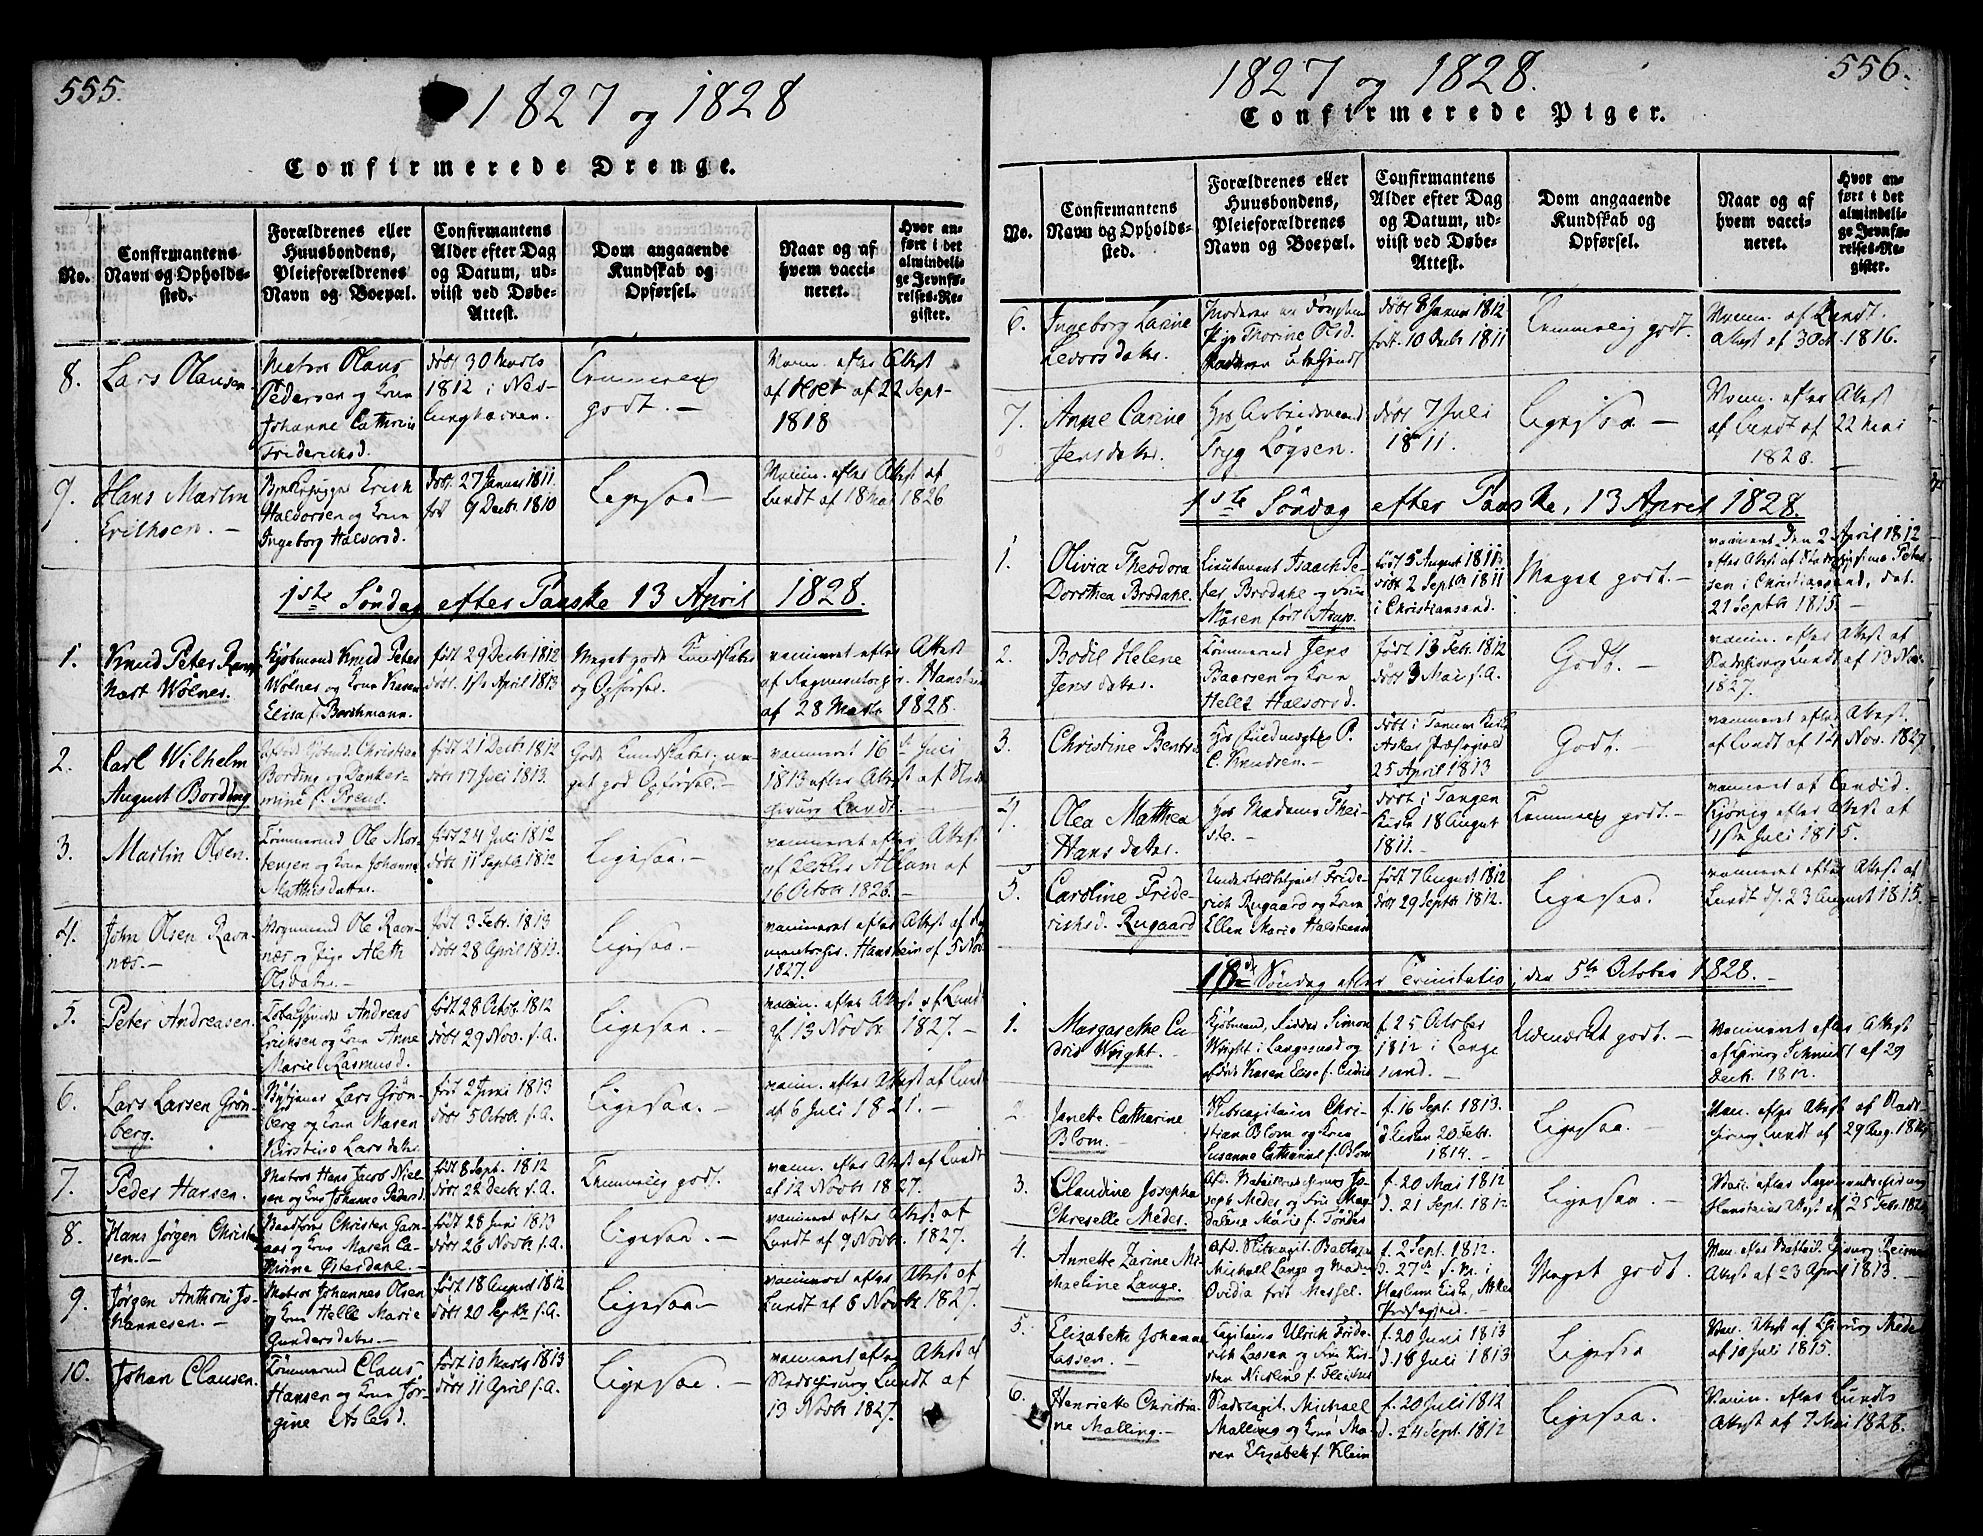 555.
1827 og 1828
Confirmerede Drenge.
No.
Confirmantens Navn og Opholdssted.
Forældrenes eller Huusbondens, Pleieforældrenes Navn og Boepæl.
Confirmantens Alder efter Dag og Datum, udviist ved Døbe-Attest.
Dom angaaende Kundskab og Opførsel.
Naar og af hvem vaccineret.
Hvor anført i det almindelige Jevnførelses-Register.
8.
Lars Olausen.
Matros Olaus
Pedersen og Kone
Johanne Cathrine
Fridericksd.
født 30 Marts
1812 i
godt. -
Vaccin. efter Attest
af Holt af 22 Sept.
1818
9.
Hans Martin
Erichsen. -
Erich
Haldorsen og Kone
Ingeborg Halvorsd.
døbt 27 Januar 1811.
født 9 Decbr 1810
Ligesaa. -
Vaccin. efter Attest af
Lundt af 18 Mai 1826
1ste Søndag efter Paaske 13 April 1828.
1.
Knud Peter
Wølner.
Kjøbmand Knud Peter
Wølner og Kone Karen
Elisa f. Borchmann.
født 29 Decbr 1812
døbt 1ste April 1813
Meget gode Kundskaber
og Opførsel.
vaccineret efter Attest
af 28 Marts 1828.
2.
Carl Wilhelm
August Bording
Christian
Bording og
født 21 Decbr 1812
døbt 17 Juli 1813.
Gode Kundskaber,
get god Opførsel. -
vaccineret 16de Juli
1813 efter Attest af
Lundt. -
3.
Martin Olsen.
Tømmermd Ole Mor-
tensen og Kone Johanne
Mathisdatter.
født 24 Juli 1812
døbt 11 Septbr 1812
Ligesaa. -
vaccineret efter Attest
af
16 Octobr 1826. -
4.
John Olsen Ravn-
næs. -
Ole Ravn-
næs og Pige Aleth
Olsdatter. -
født 3 Febr. 1813
døbt 28 April 1813.
Ligesaa. -
vaccineret efter Attest af
Hanshein af 5 Nov.
1827.
5.
Peter Andreasen.
Andreas
Erichsen og Kone Anne
Marie Rasmusd.
født 28 Octbr. 1812
døbt 29 Nov. s. A.
Ligesaa. -
vaccin. efter Attest af Lundt
af 13 Novbr 1827. -
6.
Lars Larsen Grøn-
berg.
Lars Grøn-
berg og Kone Maren
Kirstine Larsdatter
født 2 Juni 1813
døbt 5 Octobr s. A.
Ligesaa. -
vaccin. efter Attest af Lundt
af 6 Juli 1821. -
7.
Peder Hansen.
Matros Hans Jacob Niel-
sen og Kone Johanne Pedersd.
født 8 Sept. 1812
døbt 22 Decbr s. A.
Temmelig godt.
vaccin. efter Attest af Lundt
af 12 Novbr 1827.
8.
Hans Jørgen Christen-
sen. -
Christen
og Kone Maren Ca-
Østerdahl. -
født 28 Juni 1813
døbt 26 Novbr s. A.
Ligesaa. -
vaccineret efter Attest af
Lundt af 9 Novbr. 1827.
9.
Jørgen Anthoni Jo-
hannesen. -
Matros Johannes Olsen
og Kone Helle Marie
Gundersdatter. -
født 18 August 1812
døbt 20 Septbr s. A.
Ligesaa. -
vaccineret efter Attest af
Lundt af 6 Novbr 1827.
10.
Johan Clausen.
Tømmermd Claus
Hansen og Kone Jør-
gine Aslesd.
født 10 Marts 1813
døbt 11 April s. A.
Ligesaa. -
vaccineret efter Attest af
Stadschirurg Lundt af
13 Novbr 1827.
556.
1827 og 1828.
Confirmerede Piger.
No.
Confirmantens Navn og Opholdssted.
Forældrenes eller Huusbondens, Pleieforældrenes Navn og Boepæl.
Confirmantens Alder efter Dag og Datum, udviist ved Døbe-Attest.
Dom angaaende Kundskab og Opførsel.
Naar og af hvem vaccineret.
Hvor anført i det almindelige Jevnførelses-Register.
6.
Ingeborg Larine
Levorsdatter.
Moderen
Pige Thorine Olsd.
Faderen ubekjendt
døbt 8 Januar 1812
født 10 Decbr 1811
Temmelig godt.
Vaccin. af Lundt.
Attest af 30 Oct. 1816.
7.
Anne Carine
Jensdatter.
Hos Arbeidsmand
Tryg Løgsen.
døbt 7 Juli
1811.
Ligesaa. -
Vaccin. efter Attest
af Lundt af 22 Mai
1ste Søndag efter Paaske, 13 April 1828.
1.
Olivia Theodora
Dorothea Brodahl.
Lieutenant Isaach Pe-
ter Brodahl og Frue
født Arup.
født 5 August 1811
døbt 2 Septbr 1811
i Christiansand.
Meget godt. -
vaccineret den 2 April 1812
efter Attest af
sen i Christiansand, dat.
21 Septbr 1815. -
2.
Bodil Helene
Jensdatter.
Tømmermd Jens
Baarsen og Kone
Helle Halvorsd.
født 13 Febr. 1812
døbt 3 Mai s. A.
Godt. -
vaccin. efter Attest af
Stadschirurg Lundt af 13 Nov.
1827.
3.
Christine Bentsen
Hos Fuldmægtig P.
C. Knudsen. -
døbt i Tanum Kirke
Asker Præstegield
25 April 1813
Godt. -
vaccineret efter Attest
af Lundt af 14 Nov. 1827
4.
Olea Mathea
Hansdatter.
Hos Madame Thei-
ste. -
døbt i Tangen
Kirke 18 August
1811. -
Temmelig godt. -
vaccineret af Candid.
Kjønig efter Attest af
1ste Juli 1815.
5.
Caroline Fride-
richsd. Rugaard
Fride-
rich Rugaard og Kone
Ellen Marie Halstensen
født 7 August 1812
døbt 29 Septbr 1812.
Ligesaa.
vaccineret efter Attest af
Lundt d. 23 August 1815.
18de Søndag efter Trinitatis, den 5te October 1828. -
1.
Margarethe Ca-
Wright. -
Kjøbmand, Ridder Simon
Wright i Langesund og
Karen Elise f.
f. 25 October
1812 i Lange
sund. -
Udmærket godt. -
Vaccineret efter Attest
af Chirurg Schmidt af 29
Decbr. 1812.
2.
Janette Catharine
Blom. -
Chri-
stian Blom og Kone
Susanne Catharine f. Blom
f. 16 Sept. 1813.
20 Febr.
1814. -
Ligesaa. -
Vac. efter Attest af Stads-
chirurg Lundt af 29 Aug.
3.
Claudine Josepha
Meder.
Jo-
seph Meder og Frue Mag-
dalene Marie f. Tønder
f. 20 Mai 1812
d. 21 Sept. 1812
Ligesaa -
Vac. efter Regimentschirurg
Attest af 25 Febr.
4.
Annette Zarine Mi-
chaeline Lange.
Afd. Balthazar
Michael Lange og Madme
Ovidia født Massel.
f. 2 Sept. 1812.
d. 27de s. M. i
Haslum Kirke, Asker
Præstegjeld.
Meget godt.
Vac. efter
Attest af 23 April 1813. -
5.
Elizabeth Johanne
Lassen. -
Capitain Ulrich Fride-
rich Lassen og Frue Kir-
sten Nicoline f. Fleischer
f. 20 Juni 1813
d. 18 Juli 1813
Ligesaa
Vac. Attest af Chirurg
af 10 Juli 1815.
6.
Henriette Christia-
ne Malling. -
Stadscapit. Michael
Malling og Kone Ma-
ren Elizabeth f. Klein
f. 20 Juli 1812
d. 24 Sept. 1812
Ligesaa.
Vaccin. efter Lundts
Attest af 7 Mai 1828.